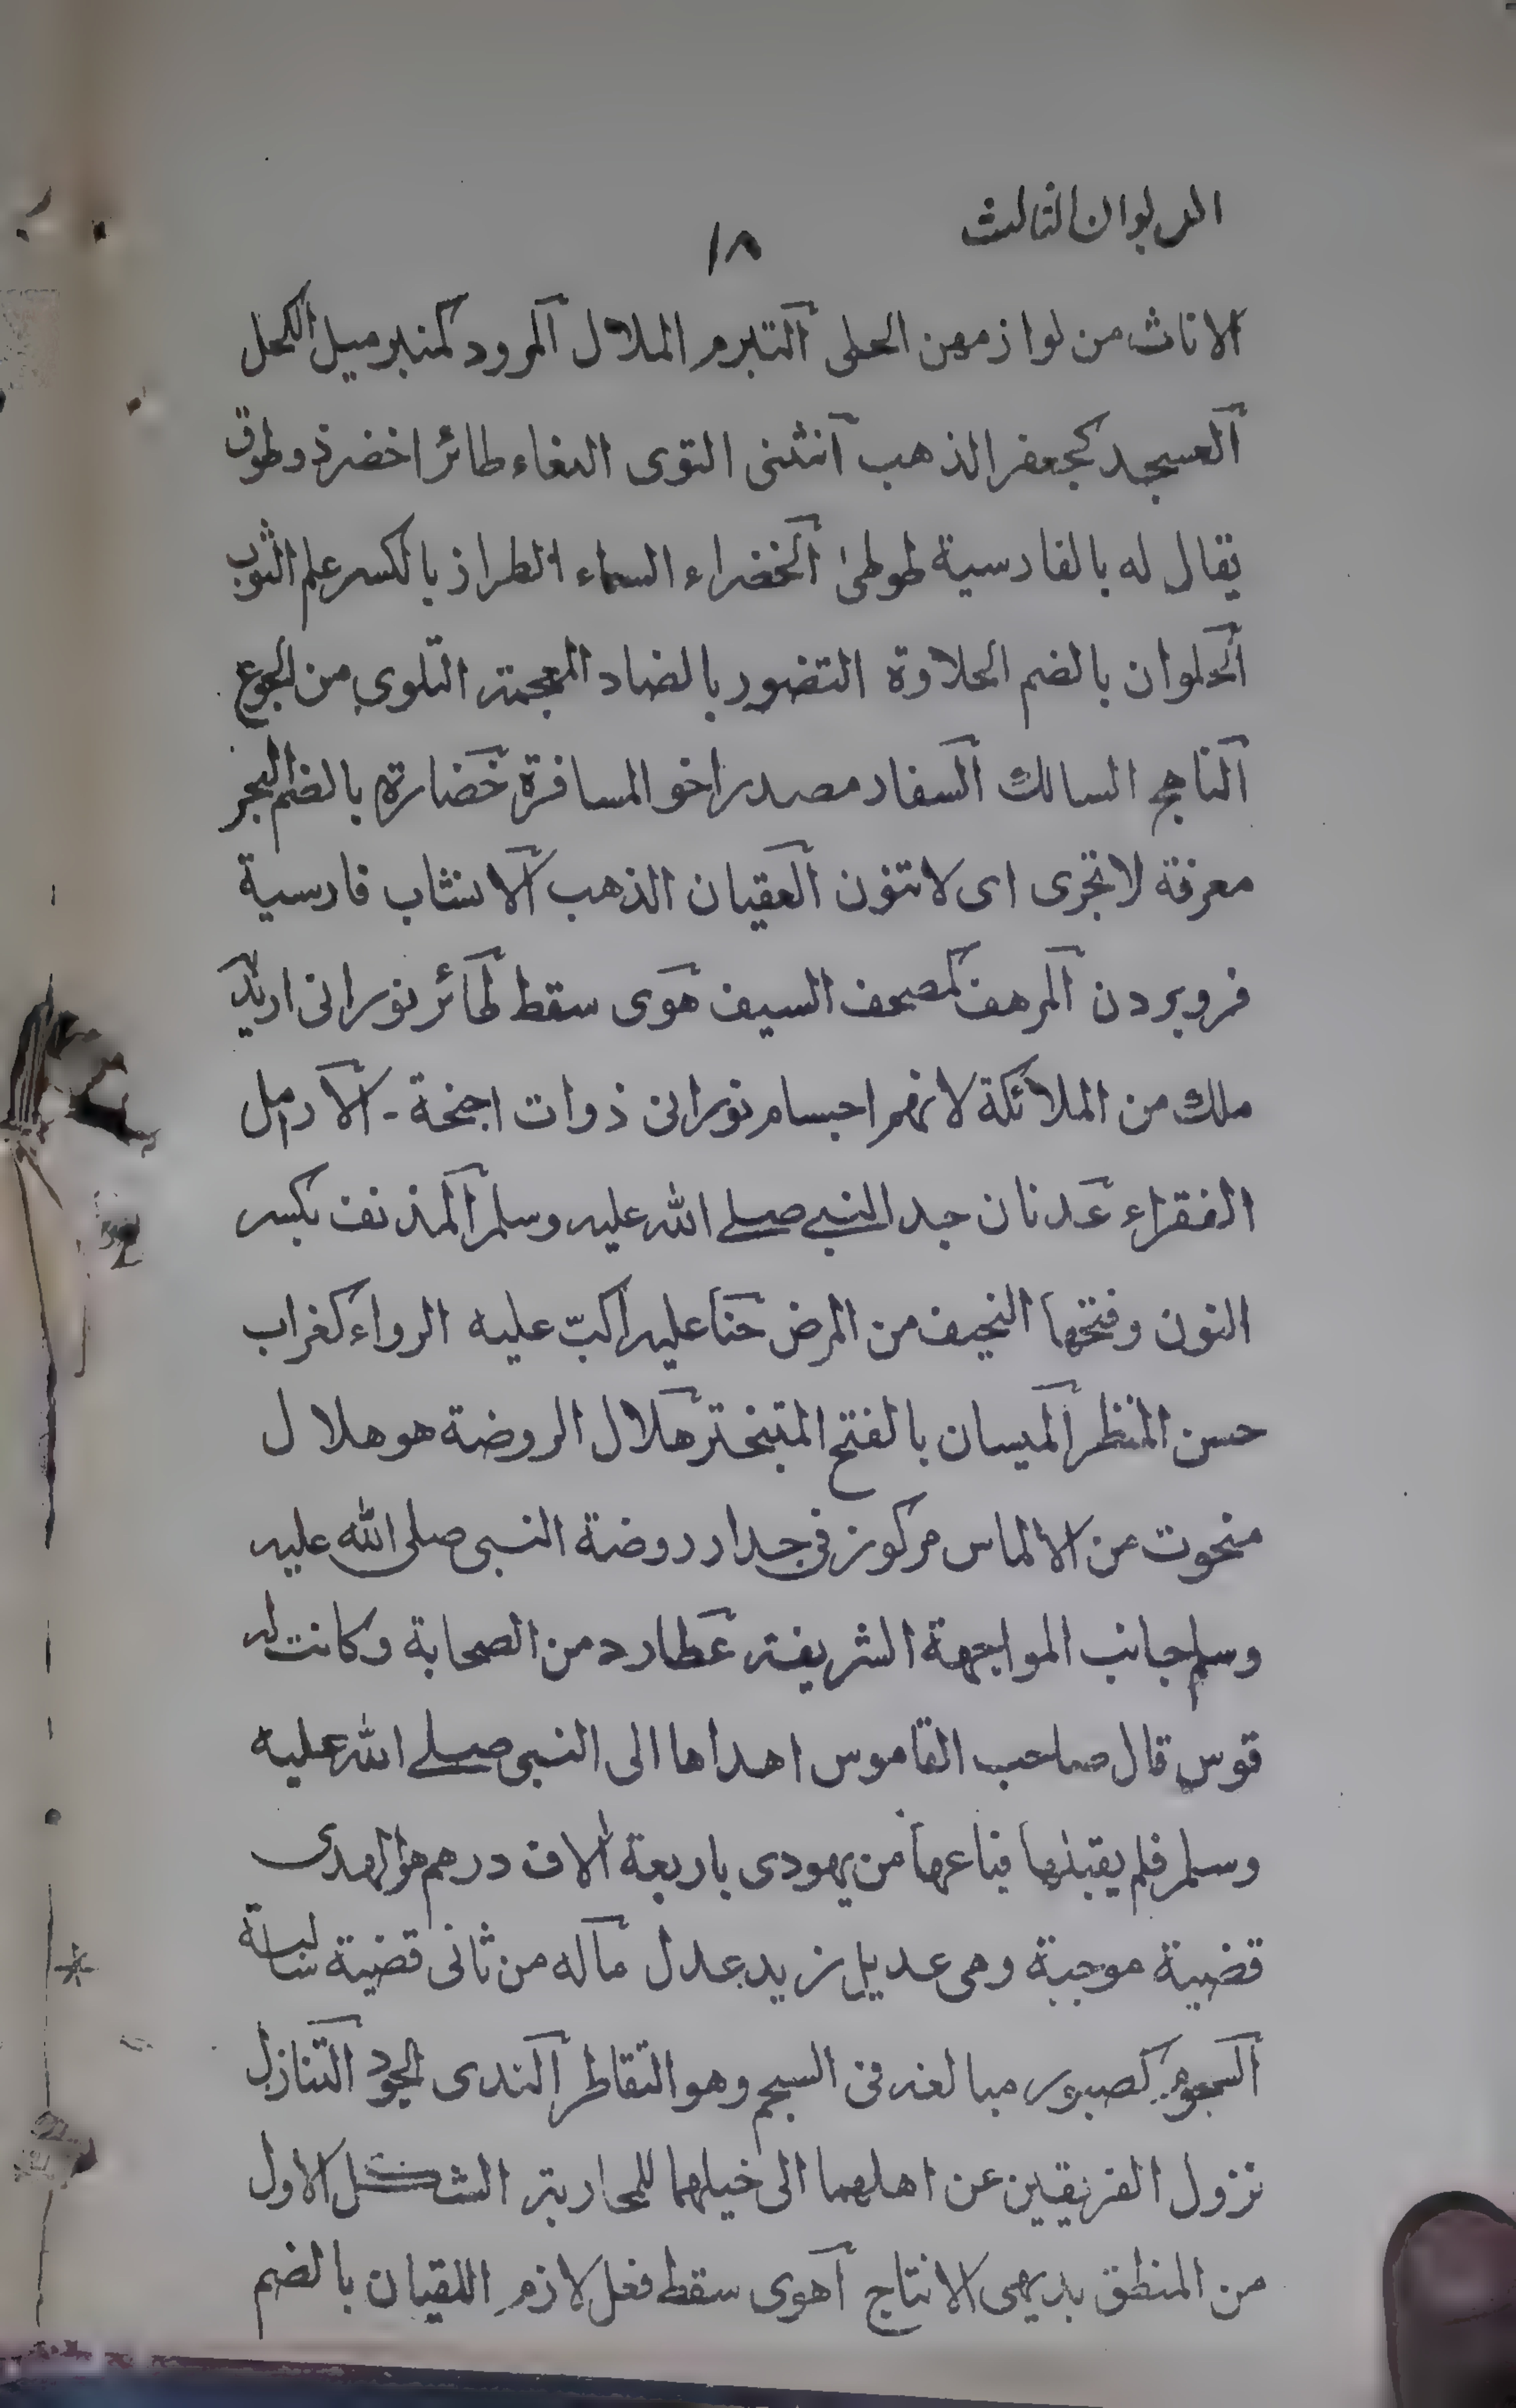 الديوان الثالث
١٨
الاناث من لوازمهن الحلى التبرم الملال المرود كمنبر ميل الكحل
العسجد كجعفر الذهب انثنى التوى الببغاء طائر اخضر ذو طوق
يقال له بالفارسية طوطى الخضراء السماء الطراز بالكسر علم الثوب
الحلوان بالضم الحلاوة التضور بالضاد المعجمة التلوى من الجوع
الناهج السالك السفار مصدر اخو المسافرة خضارة بالضم البحر
معرفة لا تجرى اى لا تنون العقيان الذهب الانشاب فارسية
فروبردن المرهف كمصحف السيف هوى سقط طائر نورانى اريد به
ملك من الملائكة لانهم اجسام نورانى ذوات اجنحة - الارامل
الفقراء عدنان جد النبي صلى الله عليه وسلم المذنف بكسر
النون وفتحها النحيف من المرض حنا عليه اكبّ عليه الرواء كغراب
حسن المنظر الميسان بالفتح المتبختر هلال الروضة هو هلال
منحوت من الالماس مركوز فى جدار روضة النبى صلى الله عليه
وسلم جانب المواجهة الشريفة عطارد من الصحابة وكانت له
قوس قال صاحب القاموس اهداها الى النبى صلى الله عليه
وسلم فلم يقبلها فباعها من يهودى باربعة الاف درهم هو الهدى
قضية موجبة وهى عديل زيد عدل ماله من ثانى قضية سالبة
السجوم كصبور مبالغة فى السجم وهو التقاطر الندى الجود التنازل
نزول الفريقين عن اهلهما الى خيلهما للمحاربة الشكل الاول
من المنطق بديهى الانتاج اهوى سقط فعل لازم اللقيان بالضم